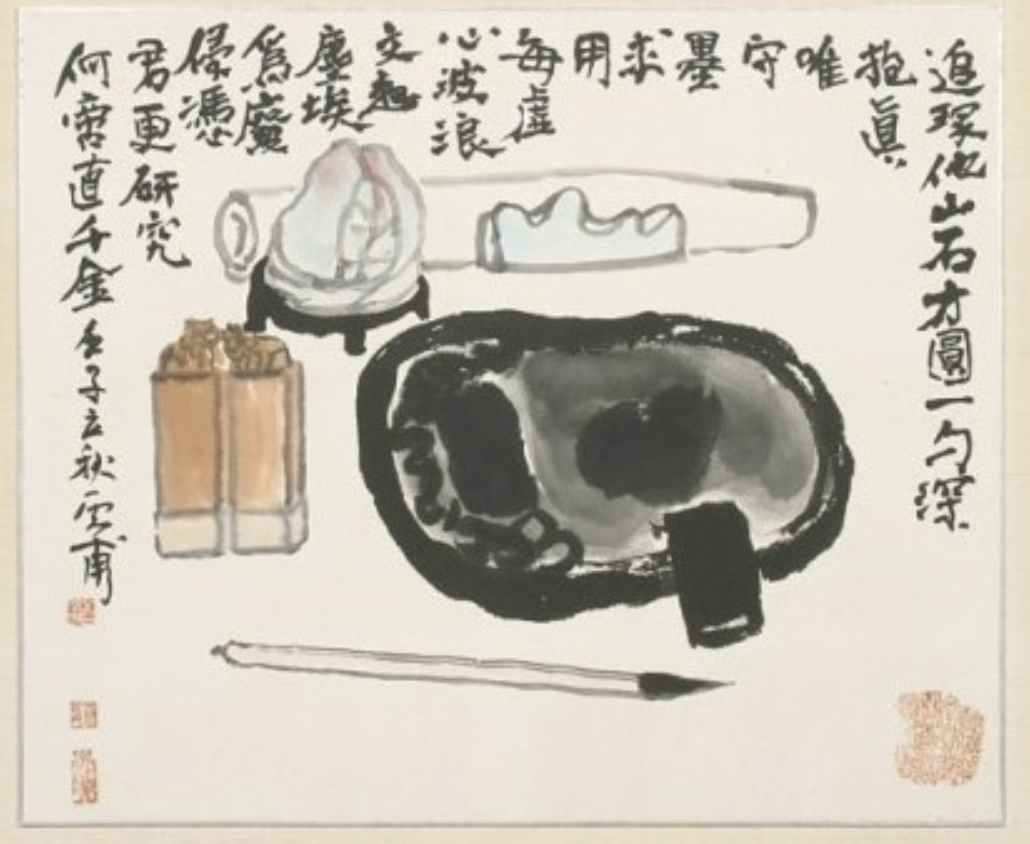 追琢他山石方圓一勺深
抱真
唯
守
墨
求
用
每虛
心波浪
文起
塵埃
為廢
侵憑
君更研究
何啻直千金 子立秋